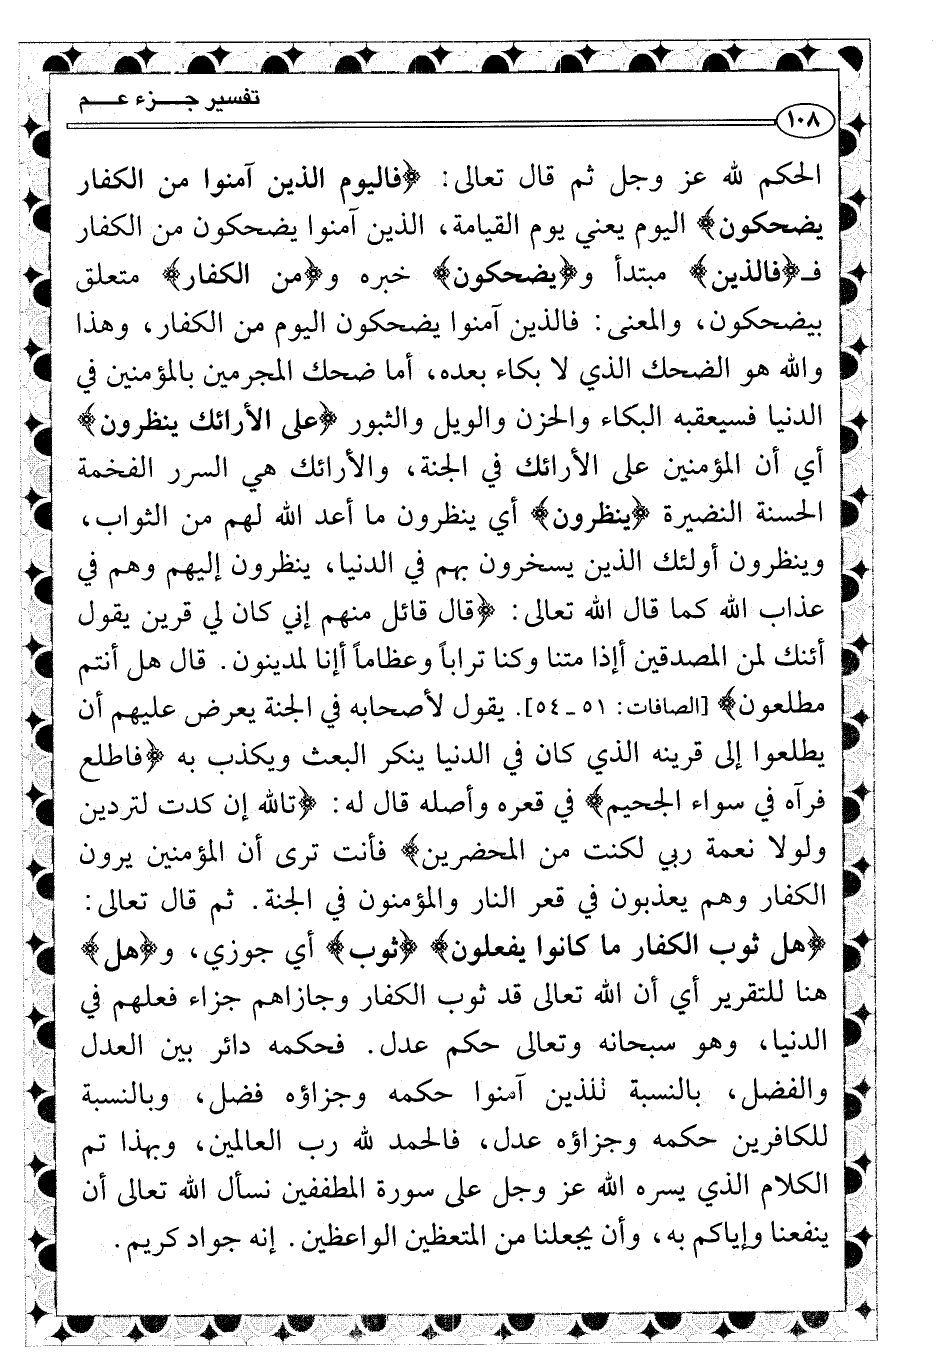 تفسير جـــزء عـــم
١٠٨
الحكم لله عز وجل ثم قال تعالى: ﴿فاليوم الذين آمنوا من الكفار
يضحكون﴾ اليوم يعني يوم القيامة، الذين آمنوا يضحكون من الكفار
فـ﴿فالذين﴾ مبتدأ و﴿يضحكون﴾ خبره و﴿من الكفار﴾ متعلق
بيضحكون، والمعنى: فالذين آمنوا يضحكون اليوم من الكفار، وهذا
والله هو الضحك الذي لا بكاء بعده، أما ضحك المجرمين بالمؤمنين في
الدنيا فسيعقبه البكاء والحزن والويل والثبور ﴿على الأرائك ينظرون﴾
أي أن المؤمنين على الأرائك في الجنة، والأرائك هي السرر الفخمة
الحسنة النضيرة ﴿ينظرون﴾ أي ينظرون ما أعد الله لهم من الثواب،
وينظرون أولئك الذين يسخرون بهم في الدنيا، ينظرون إليهم وهم في
عذاب الله كما قال الله تعالى: ﴿قال قائل منهم إني كان لي قرين يقول
أئنك لمن المصدقين أإذا متنا وكنا تراباً وعظاماً أإنا لمدينون. قال هل أنتم
مطلعون﴾ [الصافات: ٥١ ـ ٥٤]. يقول لأصحابه في الجنة يعرض عليهم أن
يطلعوا إلى قرينه الذي كان في الدنيا ينكر البعث ويكذب به ﴿فاطلع
فرآه في سواء الجحيم﴾ في قعره وأصله قال له: ﴿تالله إن كدت لتردين
ولولا نعمة ربي لكنت من المحضرين﴾ فأنت ترى أن المؤمنين يرون
الكفار وهم يعذبون في قعر النار والمؤمنون في الجنة. ثم قال تعالى:
﴿هل ثوب الكفار ما كانوا يفعلون﴾ ﴿ثوب﴾ أي جوزي، و﴿هل﴾
هنا للتقرير أي أن الله تعالى قد ثوب الكفار وجازاهم جزاء فعلهم في
الدنيا، وهو سبحانه وتعالى حكم عدل. فحكمه دائر بين العدل
والفضل، بالنسبة للذين آمنوا حكمه وجزاؤه فضل، وبالنسبة
للكافرين حكمه وجزاؤه عدل، فالحمد لله رب العالمين، وبهذا تم
الكلام الذي يسره الله عز وجل على سورة المطففين نسأل الله تعالى أن
ينفعنا وإياكم به، وأن يجعلنا من المتعظين الواعظين. إنه جواد كريم.